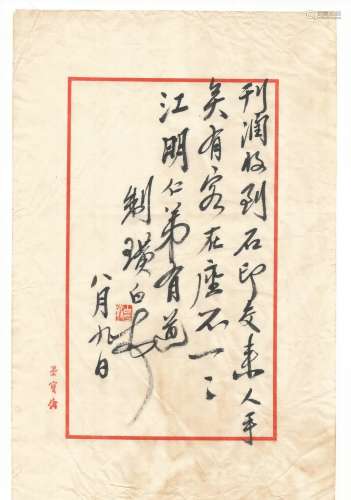 刊润收到石印交来人手
矣有客在座不一一
江明仁弟有道
制璜白
八月九日
荣宝斋